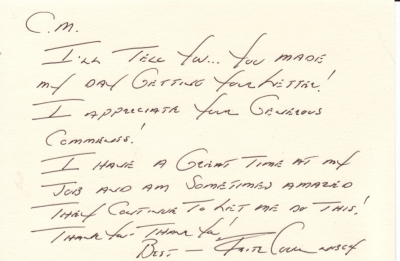 C.M.
I'll Tell You... You made
my day Getting Your Letter!
I appreciate Your Generous
Comments!
I have a Great Time at my
Job and am Sometimes amazed
They Continue To Let me Do This!
Thank You Thank You!
Best —